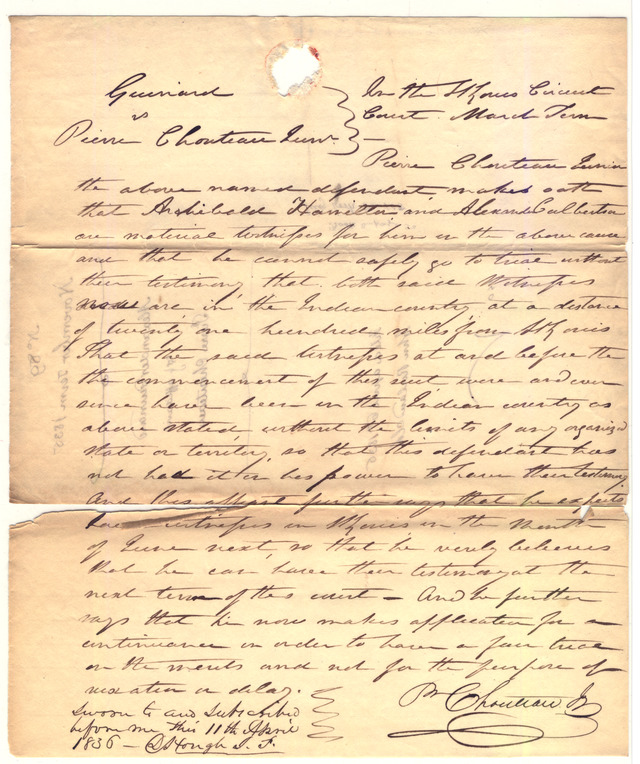 Guiniard
vs
Pierre Chouteau Junr.
In the St Louis Circuit
Court March Term
Pierre Chouteau Junior
the above named defendant makes oath
that Archibald Hamilton and Alexander Culbertson
are material witnesses for him in the above cause
and that he cannot safely go to trial without
their testimony that both said witnesses
are in the Indian country at a distance
of twenty one hundred miles from St Louis
That the said witnesses at and before the
the commencement of this suit were and ever
since have been in the Indian country as
above stated, without the limits of any organized
state or territory, so that this defendant has
not had it in his power to have their testimony
And this affiant further says that he expects
said witnesses in St Louis in the month
of June next, so that he verily believes
that he can have their testimony at the
next term of this court – And he further
says that he now makes application for a
continuance in order to have a fair trial
on the merits and not for the purpose of
vexation or delay.
P. Chouteau Jr
Sworn to and subscribed
before me this 11th April
1836 – D Hough J. P.
No 89
November Term 1835